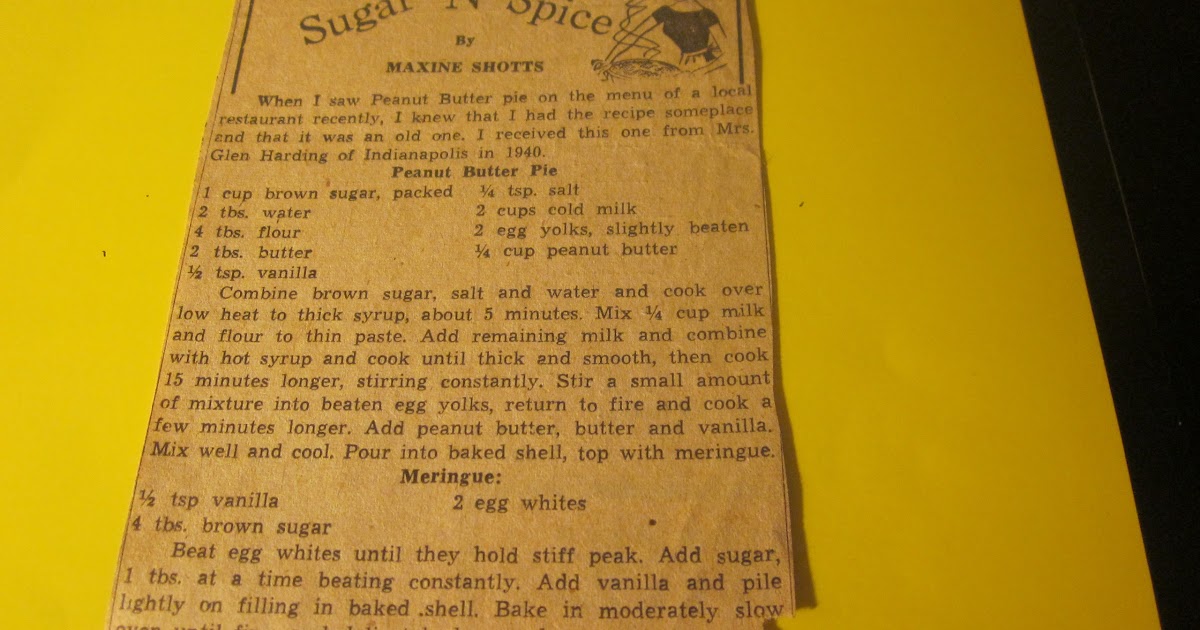 Sugar 'N Spice
By
MAXINE SHOTTS
When I saw Peanut Butter pie on the menu of a local
restaurant recently, I knew that I had the recipe someplace
and that it was an old one. I received this one from Mrs.
Glen Harding of Indianapolis in 1940.
Peanut Butter Pie
1 cup brown sugar, packed ¼ tsp. salt
2 tbs. water 2 cups cold milk
4 tbs. flour 2 egg yolks, slightly beaten
2 tbs. butter ¼ cup peanut butter
½ tsp. vanilla
Combine brown sugar, salt and water and cook over
low heat to thick syrup, about 5 minutes. Mix ¼ cup milk
and flour to thin paste. Add remaining milk and combine
with hot syrup and cook until thick and smooth, then cook
15 minutes longer, stirring constantly. Stir a small amount
of mixture into beaten egg yolks, return to fire and cook a
few minutes longer. Add peanut butter, butter and vanilla.
Mix well and cool. Pour into baked shell, top with meringue.
Meringue:
½ tsp vanilla 2 egg whites
4 tbs. brown sugar
Beat egg whites until they hold stiff peak. Add sugar,
1 tbs. at a time beating constantly. Add vanilla and pile
lightly on filling in baked shell. Bake in moderately slow
oven until